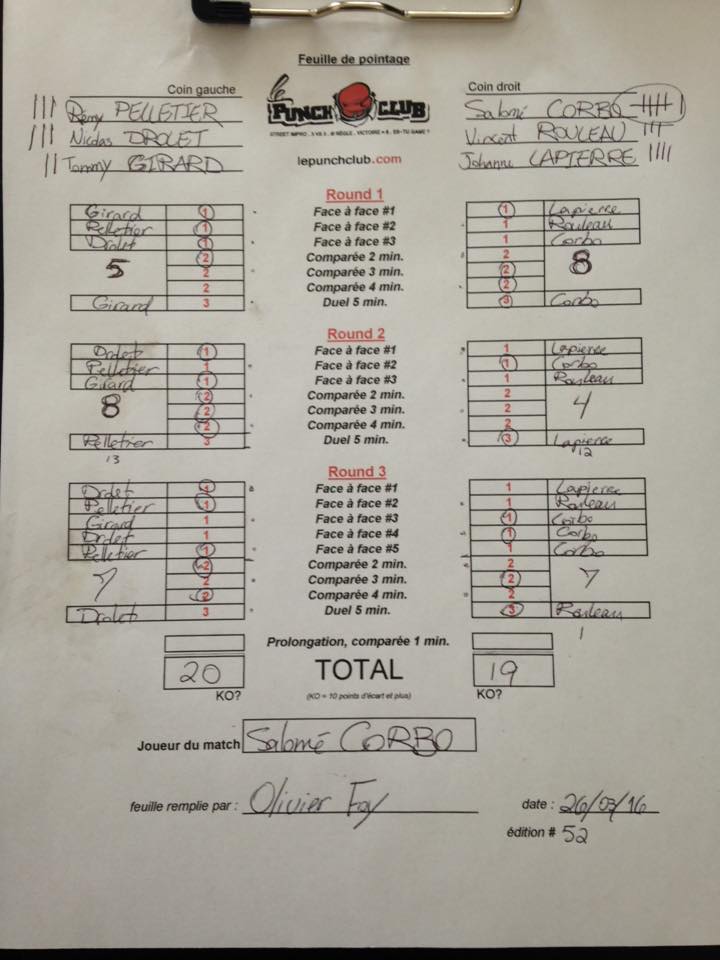 Feuille de pointage
Coin gauche
Coin droit
||| Rémy PELLETIER
||| Nicolas DROLET
|| Tommy GIRARD
le PUNCH CLUB
STREET IMPRO
lepunchclub.com
Salomé CORBO |||||
Vincent ROULEAU |||
Johanne LAPIERRE ||||
Round 1
Girard 1 Face à face #1 1 Lapierre
Pelletier 1 Face à face #2 1 Rouleau
Drolet 1 Face à face #3 1 Corbo
2 Comparée 2 min. 2
5 2 Comparée 3 min. 2 8
2 Comparée 4 min. 2
Girard 3 Duel 5 min. 3 Corbo
Round 2
Drolet 1 Face à face #1 1 Lapierre
Pelletier 1 Face à face #2 1 Corbo
Girard 1 Face à face #3 1 Rouleau
2 Comparée 2 min. 2
8 2 Comparée 3 min. 2 4
2 Comparée 4 min. 2
Pelletier 3 Duel 5 min. 3 Lapierre
13 12
Round 3
Drolet 1 Face à face #1 1 Lapierre
Pelletier 1 Face à face #2 1 Rouleau
Girard 1 Face à face #3 1 Corbo
Drolet 1 Face à face #4 1 Corbo
Pelletier 1 Face à face #5 1 Corbo
2 Comparée 2 min. 2
7 2 Comparée 3 min. 2 7
2 Comparée 4 min. 2
Drolet 3 Duel 5 min. 3 Rouleau
Prolongation, comparée 1 min.
20 TOTAL 19
KO? (KO = 10 points d'écart et plus) KO?
Joueur du match Salomé CORBO
feuille remplie par : Olivier Foy date : 26/03/16
édition # 52